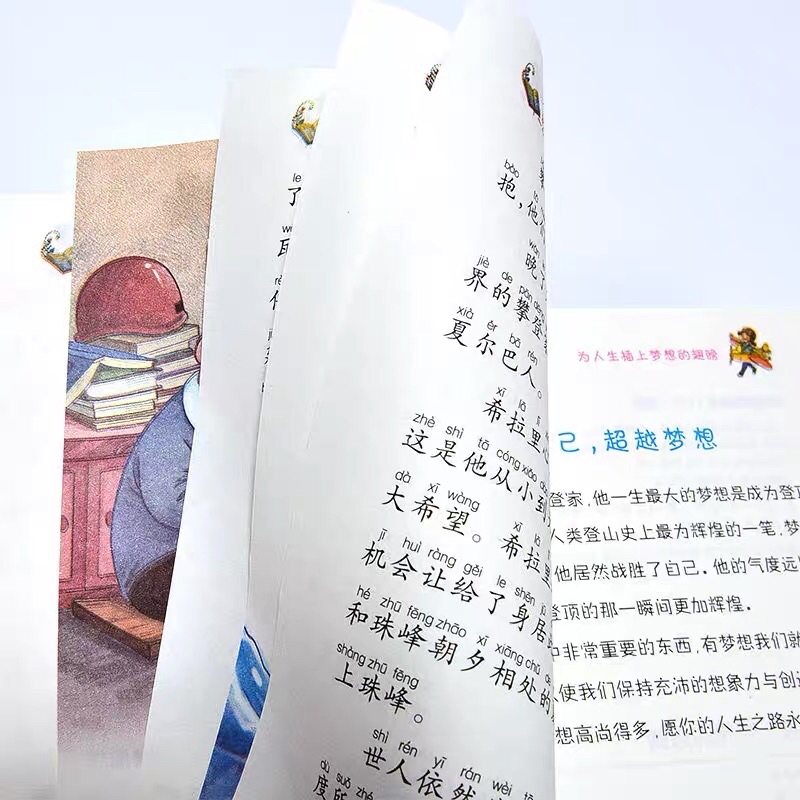 le
了
bào
抱，他
wǎn
晚了
jiè de pān dēng
界的攀登
xià ěr bā rén
夏尔巴人。
xī lā lǐ
希拉里
zhè shì tā cóng xiǎo
这是他从小到
dà xī wàng
大希望。希拉里
jī huì ràng gěi le shēn jū
机会让给了身居
hé zhū fēng zhāo xī xiāng chǔ de
和珠峰朝夕相处的
shàng zhū fēng
上珠峰。
shì rén yī rán wèi
世人依然
dù suǒ zhé
度所
为人生插上梦想的翅膀
己，超越梦想
登家，他一生最大的梦想是成为登顶
人类登山史上最为辉煌的一笔，梦
他居然战胜了自己。他的气度远
登顶的那一瞬间更加辉煌。
中非常重要的东西，有梦想我们就
使我们保持充沛的想象力与创造
想高尚得多，愿你的人生之路永